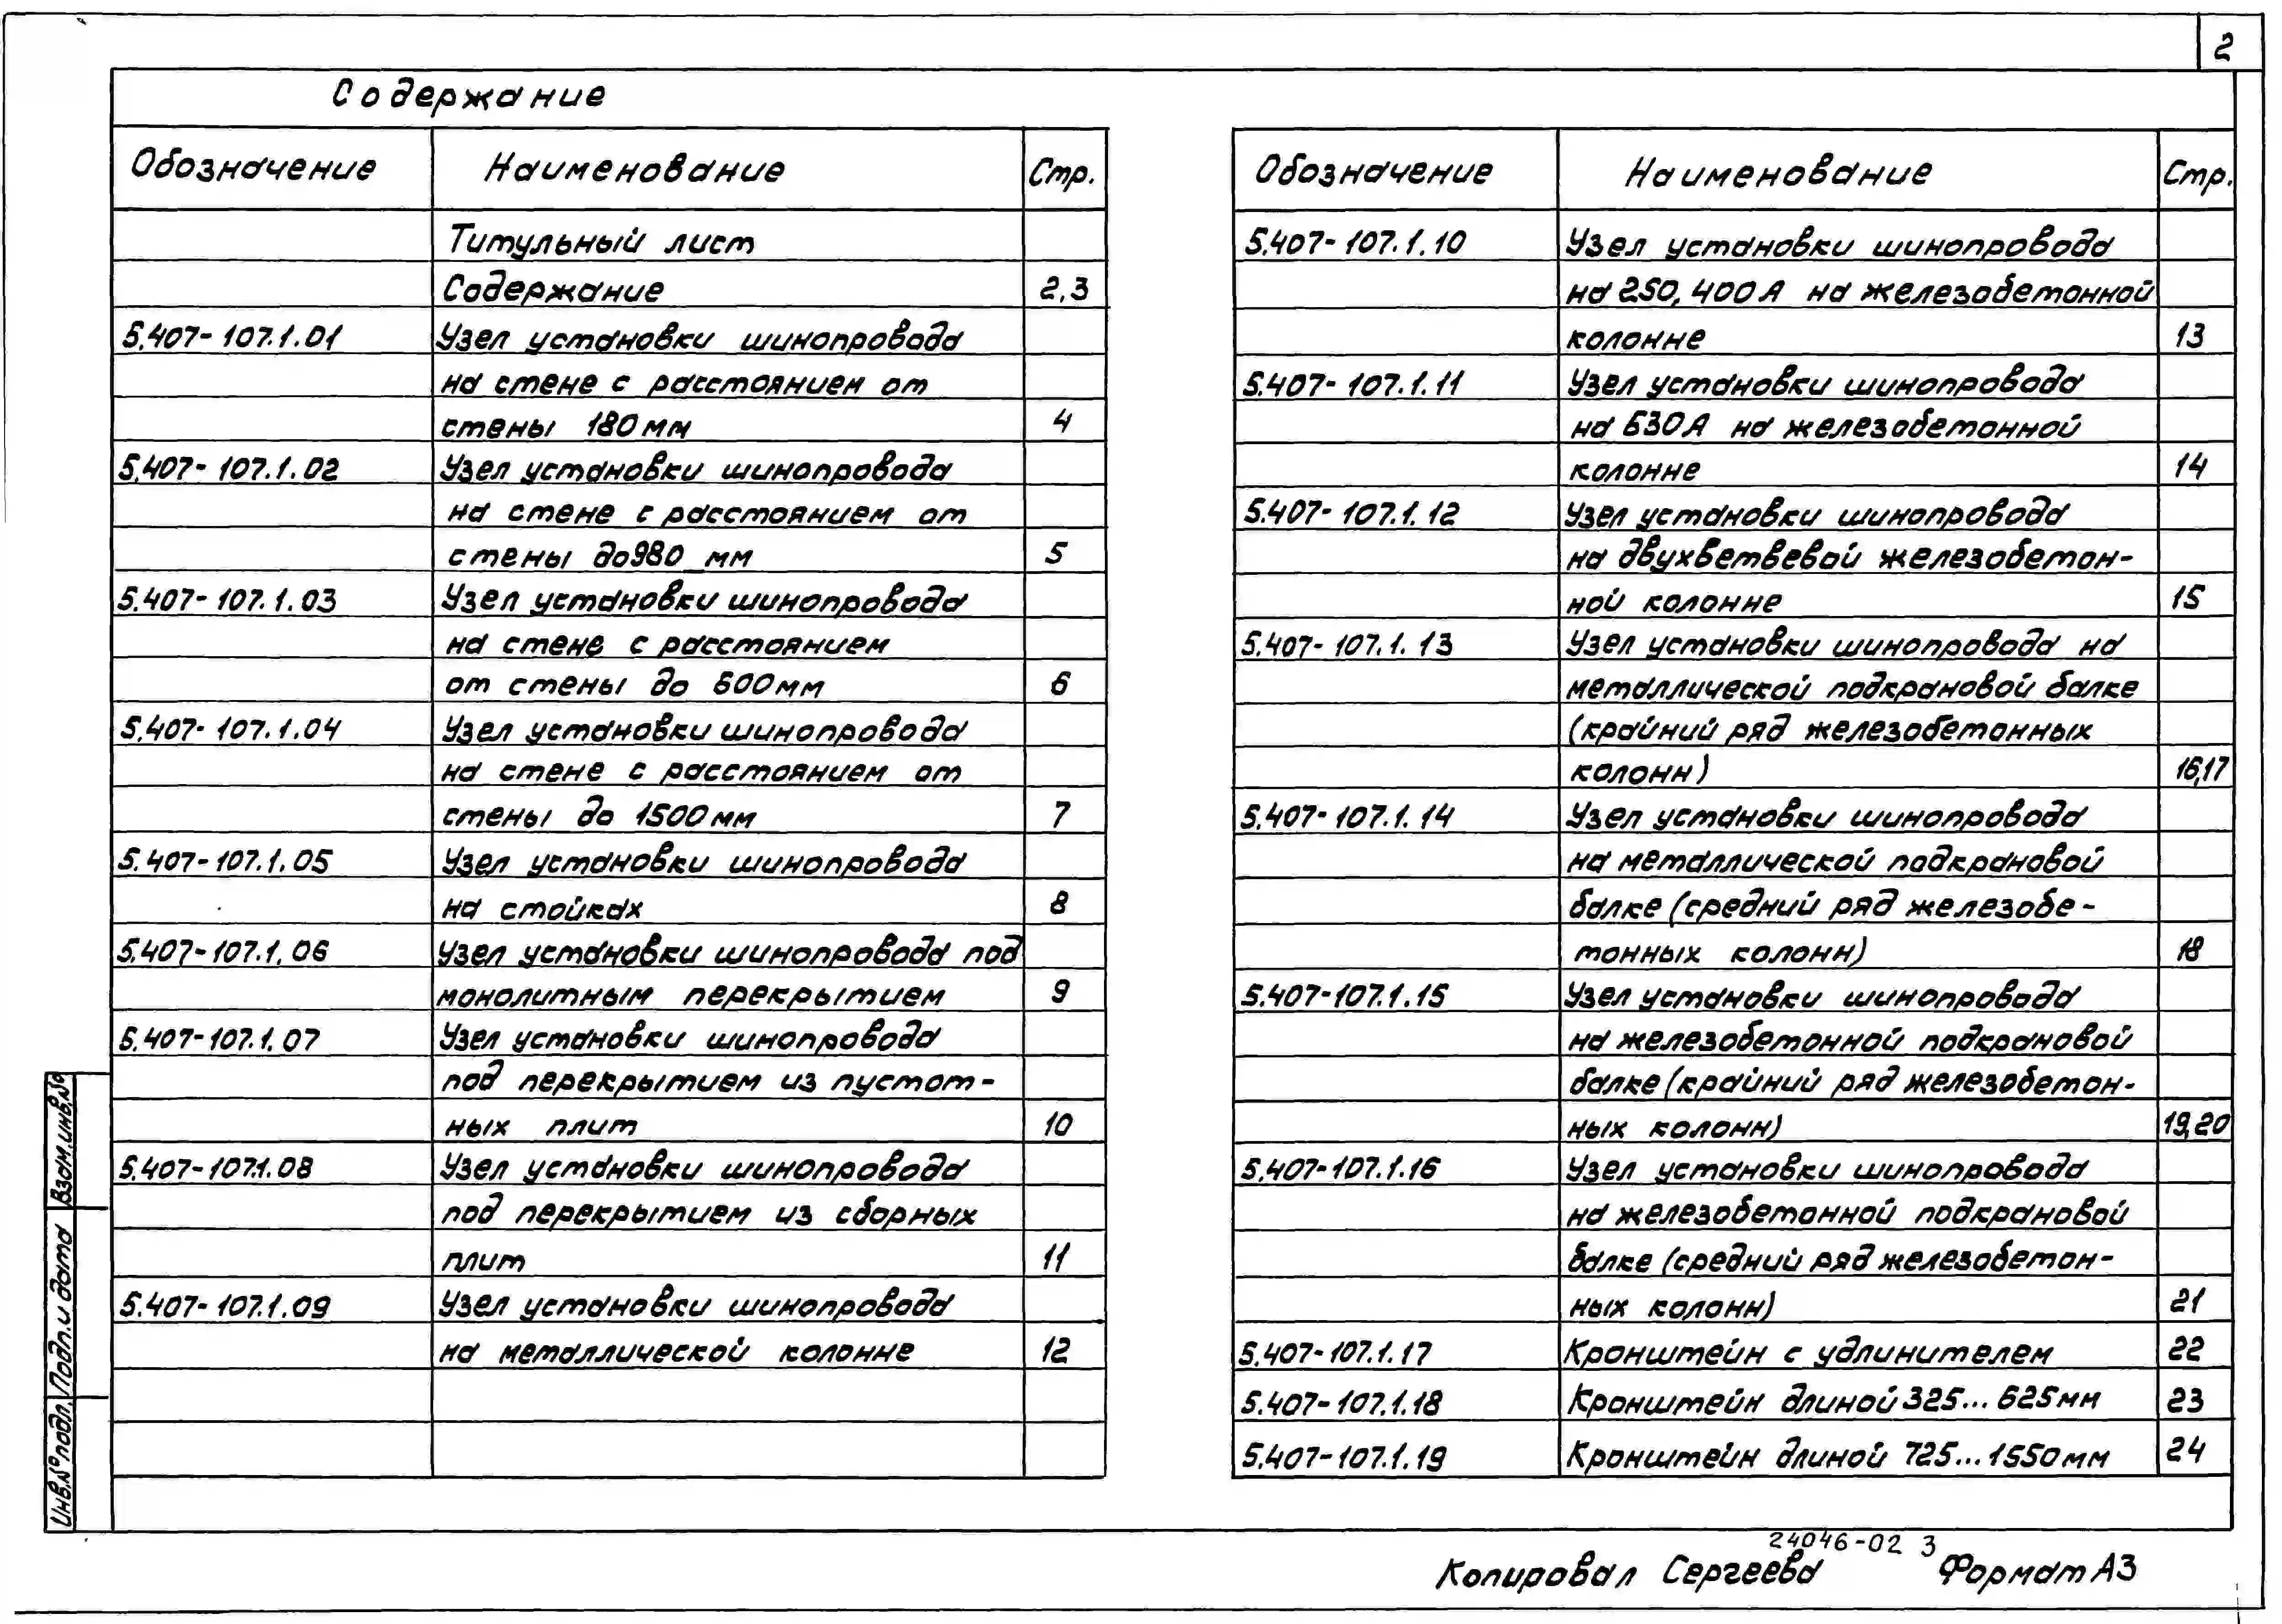 2
Содержание
Обозначение Наименование Стр.
Титульный лист
Содержание 2,3
5.407-107.1.01 Узел установки шинопровода
на стене с расстоянием от
стены 180 мм 4
5.407-107.1.02 Узел установки шинопровода
на стене с расстоянием от
стены до 980 мм 5
5.407-107.1.03 Узел установки шинопровода
на стене с расстоянием
от стены до 600 мм 6
5.407-107.1.04 Узел установки шинопровода
на стене с расстоянием от
стены до 1500 мм 7
5.407-107.1.05 Узел установки шинопровода
на стойках 8
5.407-107.1.06 Узел установки шинопровода под
монолитным перекрытием 9
5.407-107.1.07 Узел установки шинопровода
под перекрытием из пустот-
ных плит 10
5.407-107.1.08 Узел установки шинопровода
под перекрытием из сборных
плит 11
5.407-107.1.09 Узел установки шинопровода
на металлической колонне 12
Обозначение Наименование Стр.
5.407-107.1.10 Узел установки шинопровода
на 250, 400 А на железобетонной
колонне 13
5.407-107.1.11 Узел установки шинопровода
на 630 А на железобетонной
колонне 14
5.407-107.1.12 Узел установки шинопровода
на двухветвевой железобетон-
ной колонне 15
5.407-107.1.13 Узел установки шинопровода на
металлической подкрановой балке
(крайний ряд железобетонных
колонн) 16,17
5.407-107.1.14 Узел установки шинопровода
на металлической подкрановой
балке (средний ряд железобе-
тонных колонн) 18
5.407-107.1.15 Узел установки шинопровода
на железобетонной подкрановой
балке (крайний ряд железобетон-
ных колонн) 19,20
5.407-107.1.16 Узел установки шинопровода
на железобетонной подкрановой
балке (средний ряд железобетон-
ных колонн) 21
5.407-107.1.17 Кронштейн с удлинителем 22
5.407-107.1.18 Кронштейн длиной 325...625 мм 23
5.407-107.1.19 Кронштейн длиной 725...1550 мм 24
Инв.№ подл. Подп. и дата Взам.инв.№
24046-02 3
Копировал Сергеева Формат А3